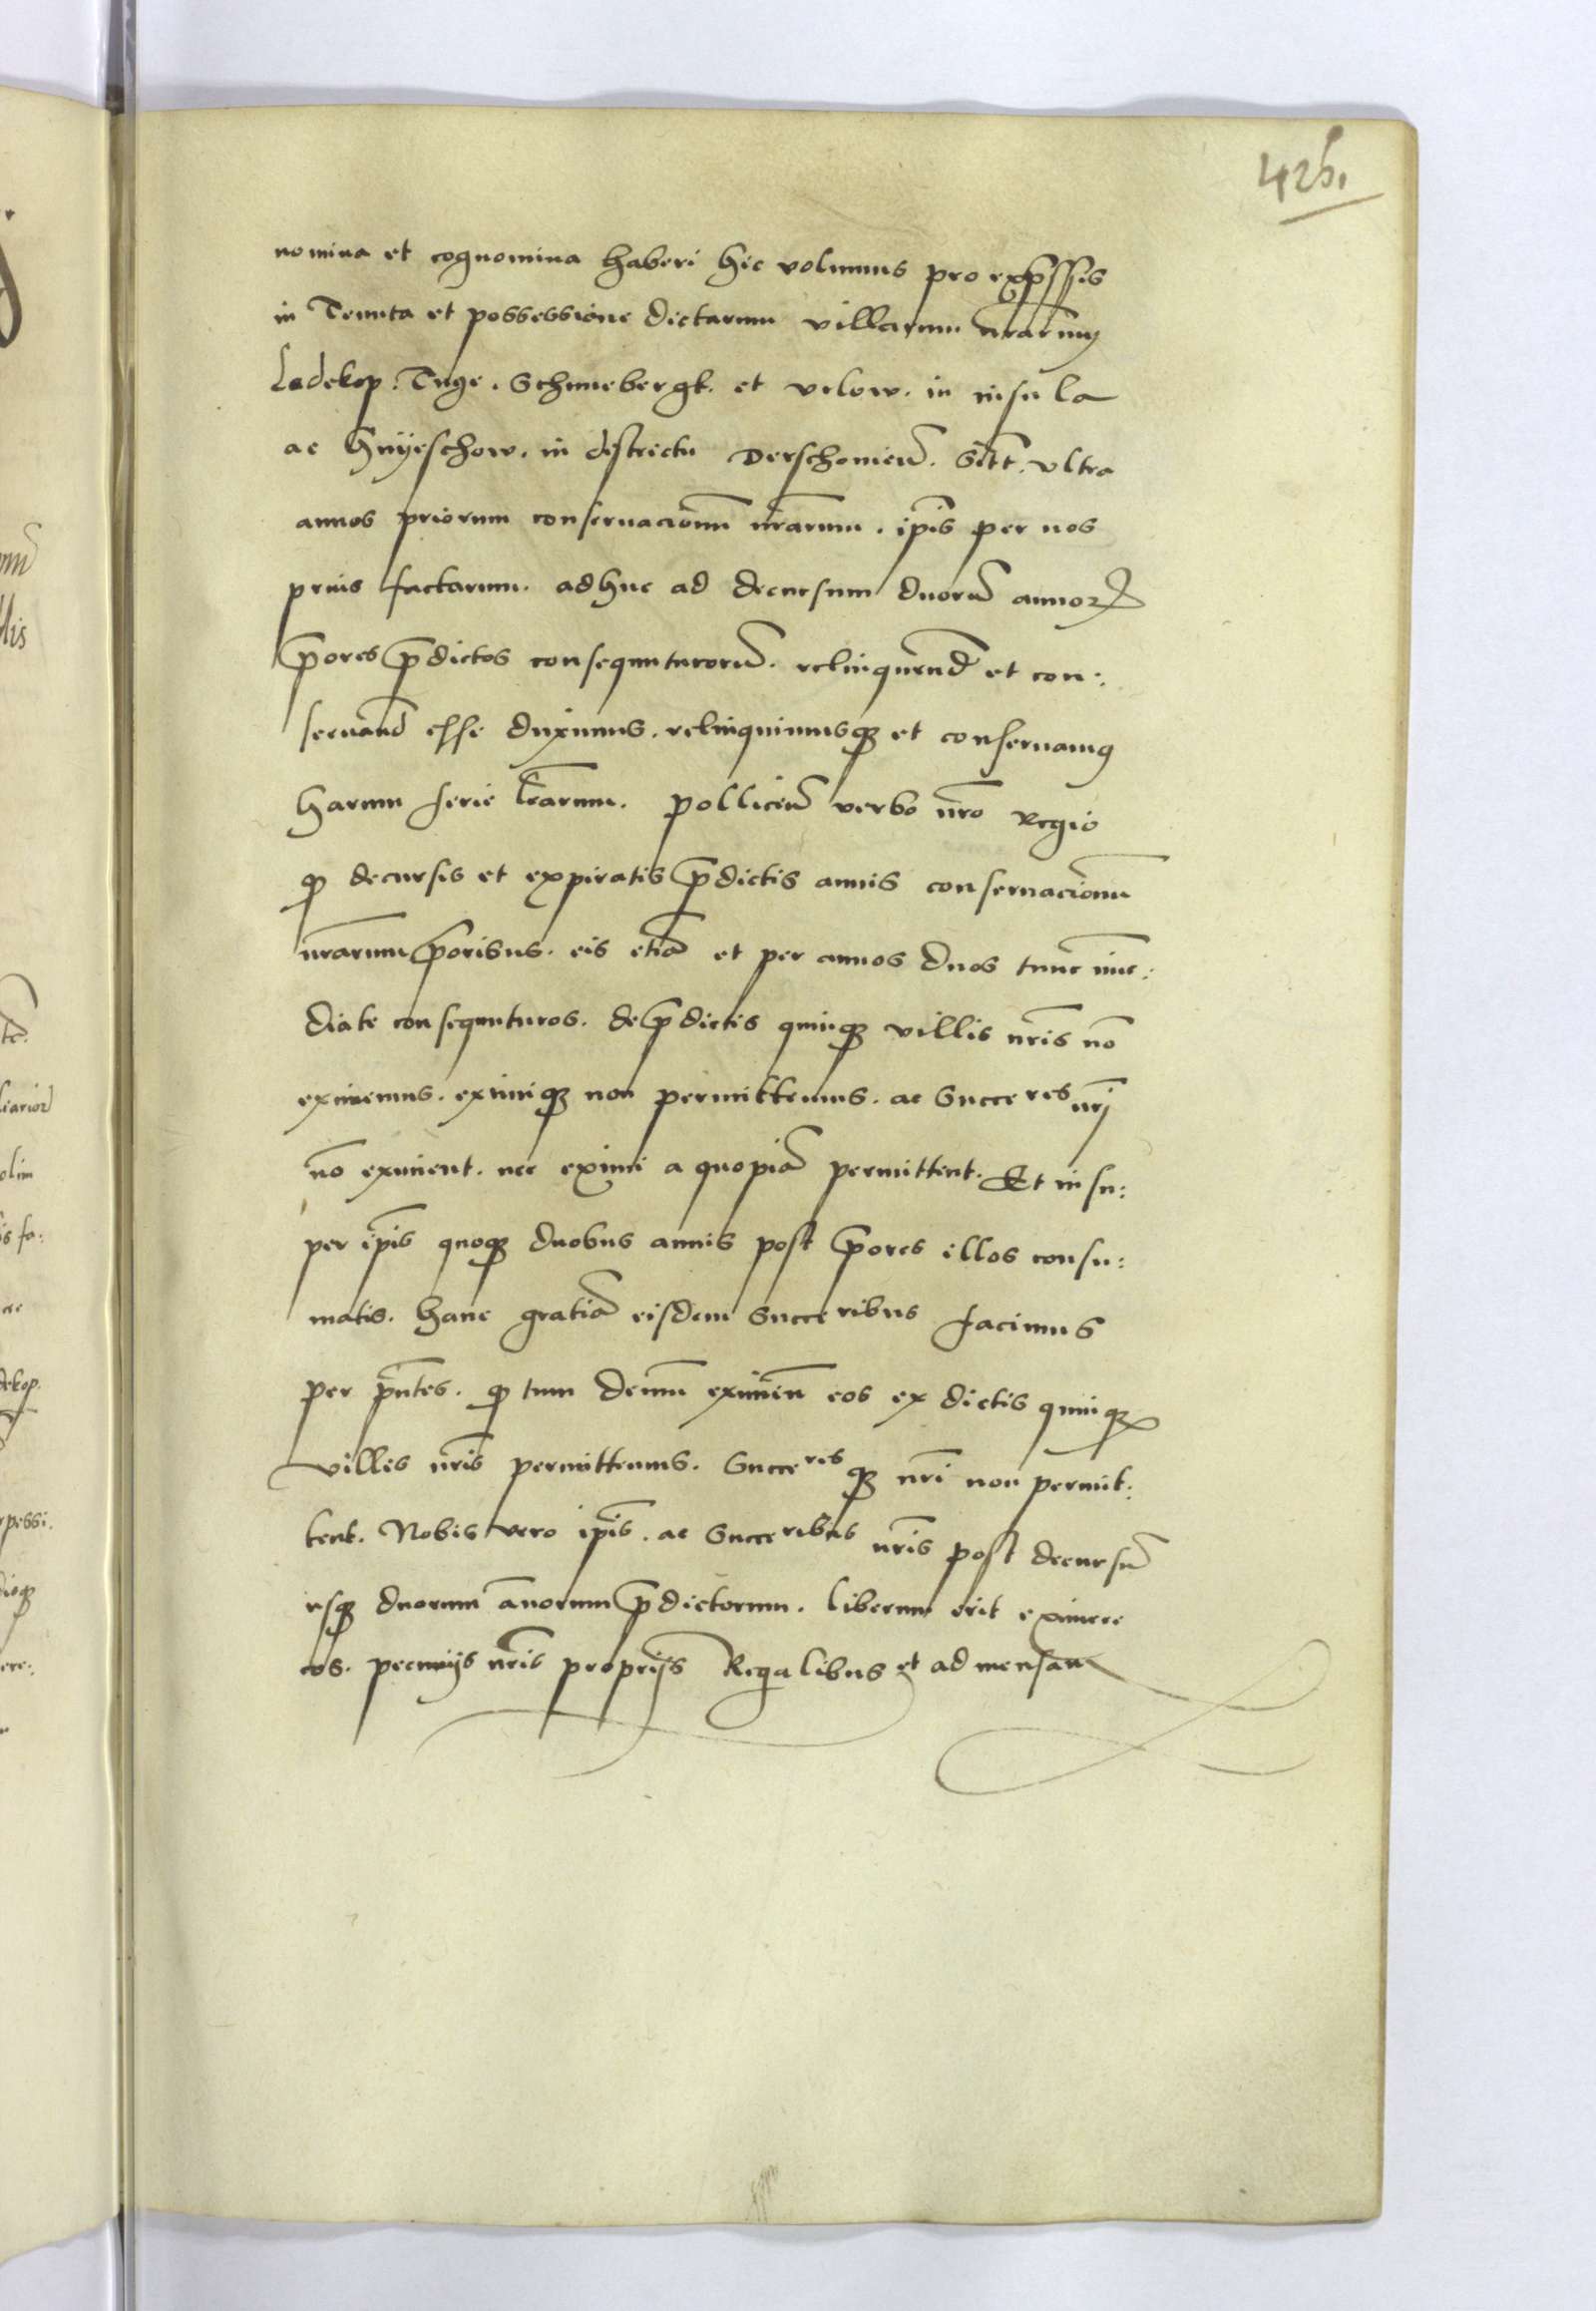 425.
nomina et cognomina haberi hic volumus pro exp̃ssis
in Tenuta et possessione dictarum villarum nr̃arum
Ladekop. Tuge. Schunebergk. et Velow. in insula
ac Gnyeschow. in districtu Derschonień. Sitt. ultra
annos priorum conservacionũ nr̃arum. ip̃is per nos
prius factarum. adhuc ad decursum duorũ annoꝝ
p̃ores p̃dictos consequuturorũ. relinquend̃ et con:
servand̃ esse duximus. relinquimusqꝫ et conservamꝯ
harum serie lr̃arum. polliceñ verbo nr̃o Regio
ꝙ decursis et expiratis p̃dictis annis conservacionũ
nr̃arum p̃oribus. eis etiã et per annos duos tunc imme:
diate consequuturos. de p̃dictis quinqꝫ villis nr̃is nõ
eximemus. eximiqꝫ non permittemus. ac Succeres nr̃j
nõ eximent. nec eximi a quopiã permittent. Et insu:
per ip̃is quoqꝫ duobus annis post p̃ores illos consu:
matis. hanc gratiã eisdem Succeribus facimus
per p̃ntes. ꝙ tum demũ eximeñ eos ex dictis quinqꝫ
villis nr̃is permittemus. Succeres qꝫ nr̃i non permit:
tent. Nobis vero ip̃is. ac Succeribus nr̃is post decursũ
usqꝫ duorum ãnorum p̃dictorum. liberum erit eximere
eos. pecunijs nr̃is proprijs Regalibus et ad mensam